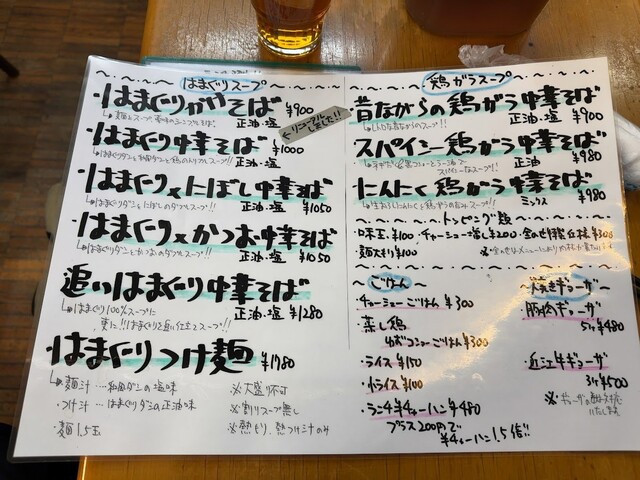 はまぐりスープ
・はまぐりかやそば ¥900
正油・塩
・はまぐり中華そば ¥1000
正油・塩
・はまぐり×にぼし中華そば
はまぐりダシとにぼしのダブルスープ!!
正油・塩 ¥1050
・はまぐり×かつお中華そば
はまぐりダシとかつおのダブルスープ!!
正油・塩 ¥1050
追いはまぐり中華そば
はまぐり100%スープに
更に!!はまぐりを追い仕立てスープ!!
正油・塩 ¥1280
はまぐりつけ麺 ¥1780
・麺汁…和風ダシの塩味
・つけ汁…はまぐりダシの正油味
・麺1.5玉
※大盛り不可
※割りスープ無し
※熱もり、熱つけ汁のみ
鶏ガラスープ
リニューアルしました!!
昔ながらの鶏がら中華そば
正油・塩 ¥900
スパイシー鶏がら中華そば
正油 ¥980
スパイシーなスープ!!
にんにく鶏がら中華そば
ミックス ¥980
トッピング類
・味玉¥100
・麺大もり¥100
ごはん
・チャーシューごはん ¥300
・蒸し鶏
ごはん¥300
・ライス¥150
・小ライス¥100
・ランチ半チャーハン¥480
プラス200円で
半チャーハン1.5倍!!
焼きギョーザ
豚肉ギョーザ
5ヶ¥480
近江牛ギョーザ
3ヶ¥500